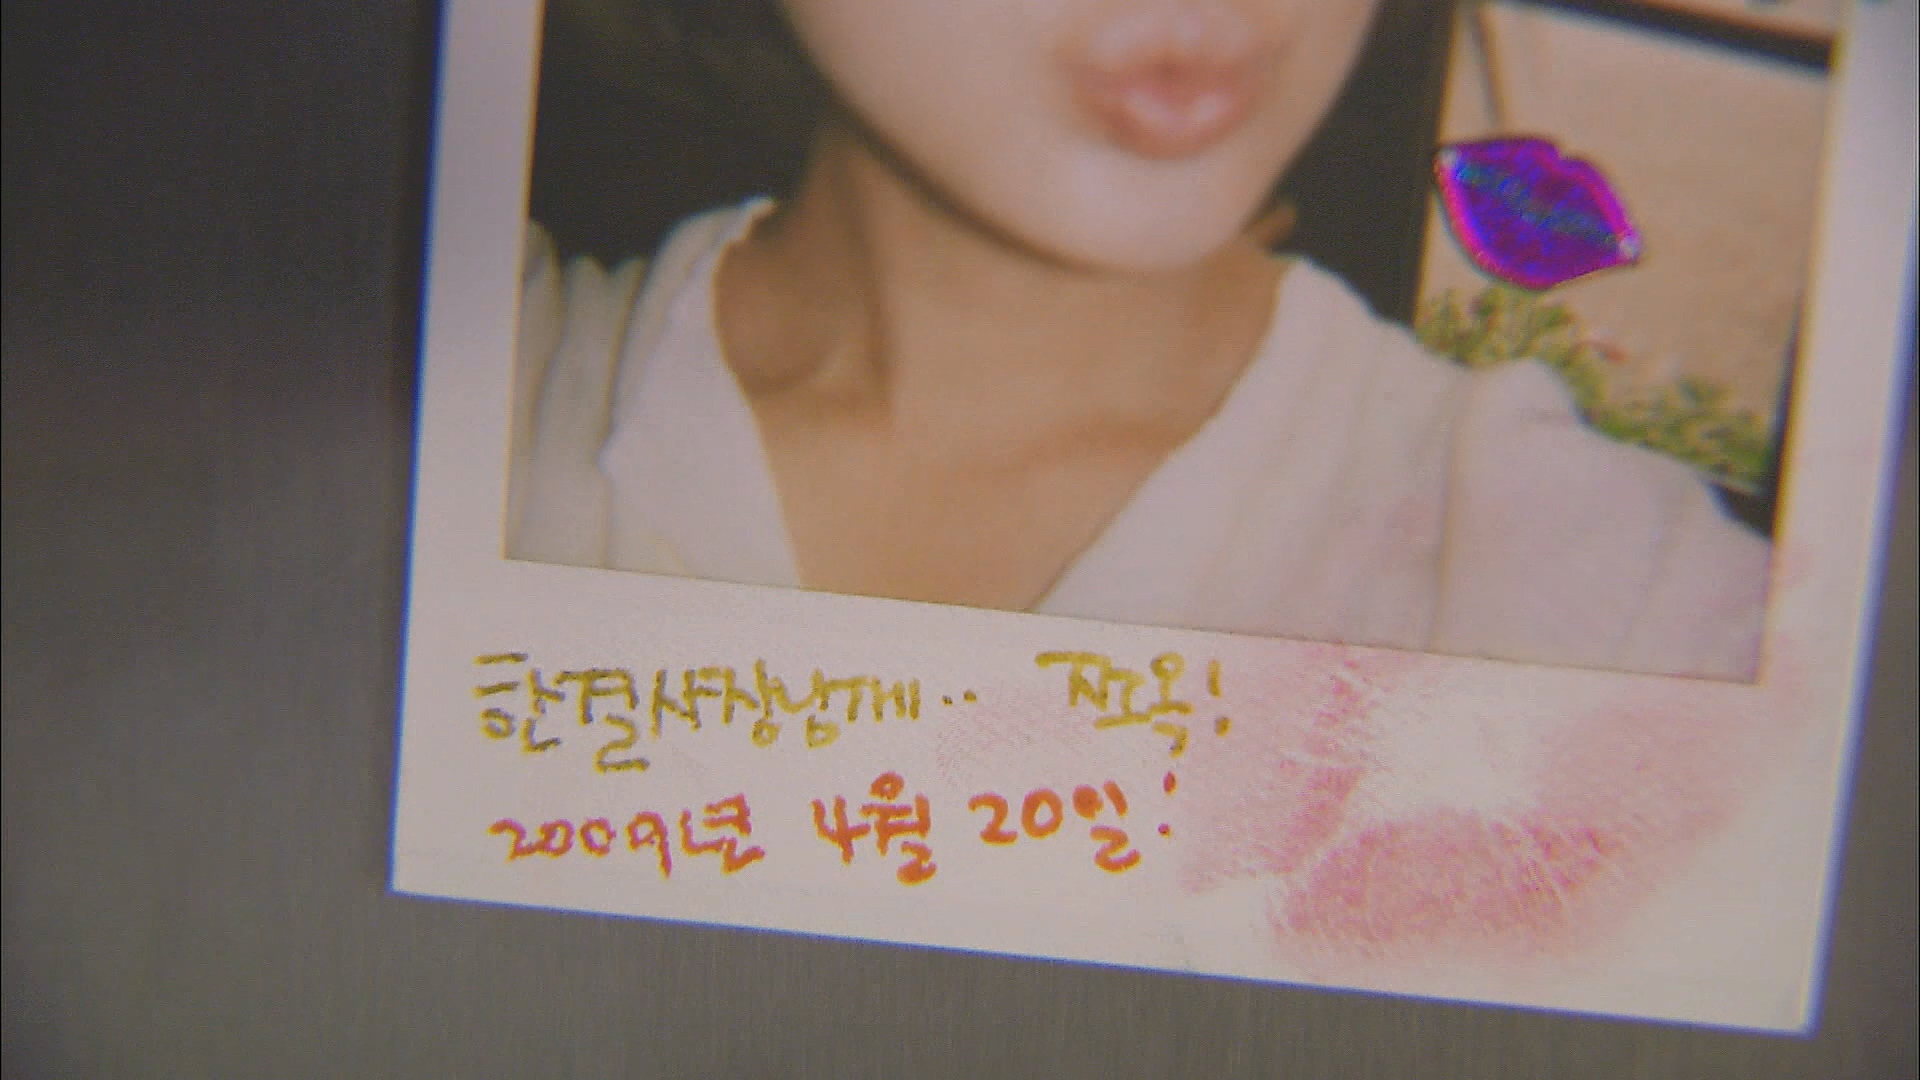 한결사장님께.. 쪼옥!
2009년 4월 20일!